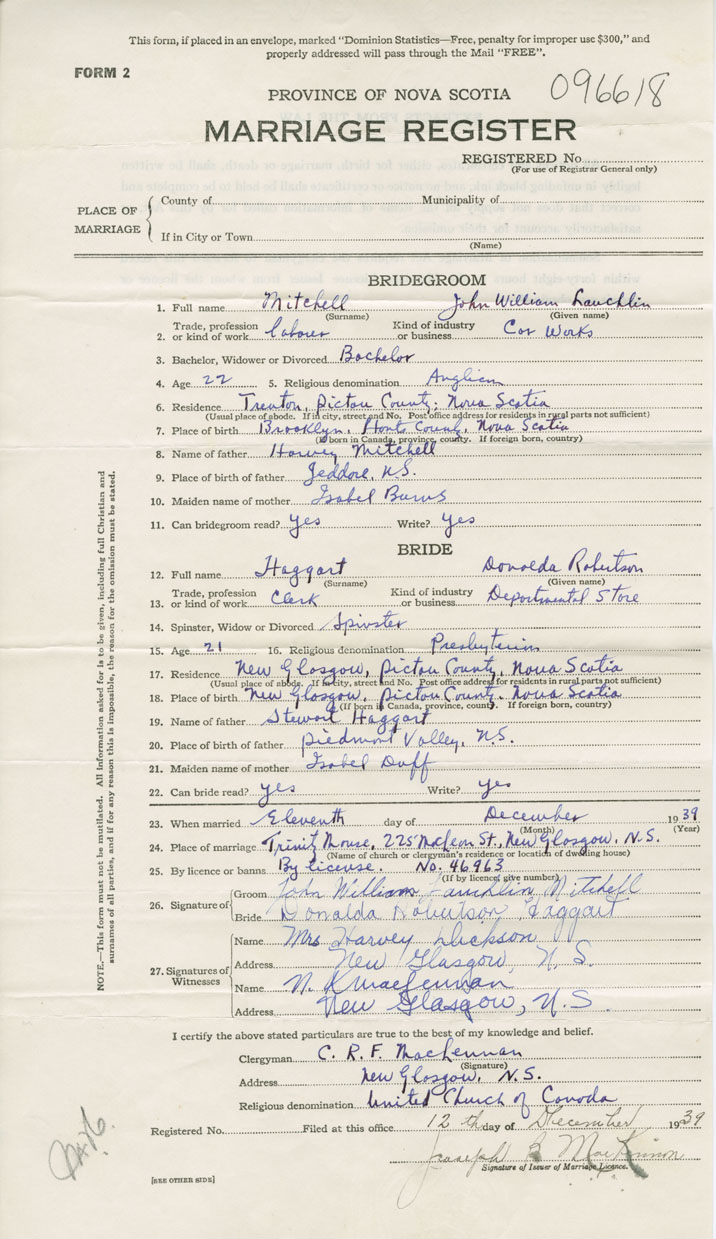 This form, if placed in an envelope, marked "Dominion Statistics—Free, penalty for improper use $300," and
properly addressed will pass through the Mail "FREE".
FORM 2
096618
PROVINCE OF NOVA SCOTIA
MARRIAGE REGISTER
REGISTERED No.
(For use of Registrar General only)
PLACE OF MARRIAGE
County of Municipality of
If in City or Town
(Name)
BRIDEGROOM
1. Full name Mitchell John William Lauchlin
(Surname) (Given name)
2. Trade, profession or kind of work labour Kind of industry or business Car Works
3. Bachelor, Widower or Divorced Bachelor
4. Age 22 5. Religious denomination Anglican
6. Residence Trenton, Pictou County, Nova Scotia
(Usual place of abode. If in city, street and No. Post office address for residents in rural parts not sufficient)
7. Place of birth Brooklyn, Hants County, Nova Scotia
(If born in Canada, province, county. If foreign born, country)
8. Name of father Harvey Mitchell
9. Place of birth of father Jeddore, N.S.
10. Maiden name of mother Isabel Burns
11. Can bridegroom read? yes Write? yes
BRIDE
12. Full name Haggart Donalda Robertson
(Surname) (Given name)
13. Trade, profession or kind of work Clerk Kind of industry or business Departmental Store
14. Spinster, Widow or Divorced Spinster
15. Age 21 16. Religious denomination Presbyterian
17. Residence New Glasgow, Pictou County, Nova Scotia
(Usual place of abode. If in city, street and No. Post office address for residents in rural parts not sufficient)
18. Place of birth New Glasgow, Pictou County, Nova Scotia
(If born in Canada, province, county. If foreign born, country)
19. Name of father Stewart Haggart
20. Place of birth of father Piedmont Valley, N.S.
21. Maiden name of mother Isabel Duff
22. Can bride read? yes Write? yes
23. When married Eleventh day of December 1939
(Month) (Year)
24. Place of marriage Trinity Manse, 225 MacLean St., New Glasgow, N.S.
(Name of church or clergyman's residence or location of dwelling house)
25. By licence or banns By license. No. 46963
(If by licence, give number)
26. Signature of
Groom John William Lauchlin Mitchell
Bride Donalda Robertson Haggart
27. Signatures of Witnesses
Name Mrs Harvey Dickson
Address New Glasgow, N.S.
Name N. K MacLennan
Address New Glasgow, N.S.
I certify the above stated particulars are true to the best of my knowledge and belief.
Clergyman C. R. F. MacLennan
(Signature)
Address New Glasgow, N.S.
Religious denomination United Church of Canada
Registered No. Filed at this office 12th day of December 1939
Joseph MacKinnon
Signature of Issuer of Marriage Licence.
[SEE OTHER SIDE]
NOTE.—This form must not be mutilated. All information asked for is to be given, including full Christian and
surnames of all parties, and if for any reason this is impossible, the reason for the omission must be stated.